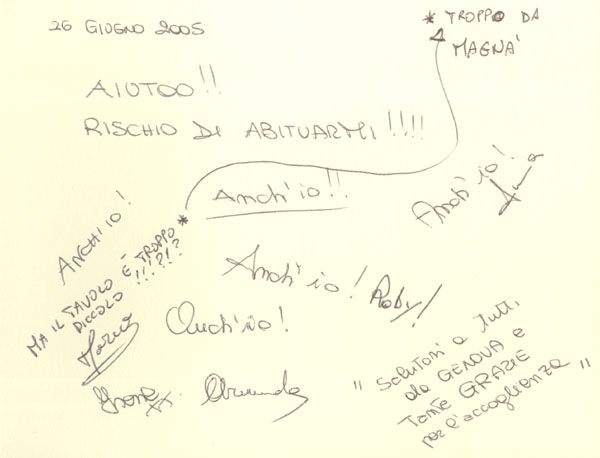 26 GIUGNO 2005
* TROPPO DA
MAGNA'
AIUTOO!!
RISCHIO DI ABITUARMI!!!!
Anch'io!!
Anch'io!
Anna
ANCH'IO!
MA IL TAVOLO È TROPPO *
PICCOLO !!!?!?
Marco
Anch'io! Roby!
Anch'io!
"Salutoni a tutti,
da GENOVA e
Tante GRAZIE
per l'accoglienza"